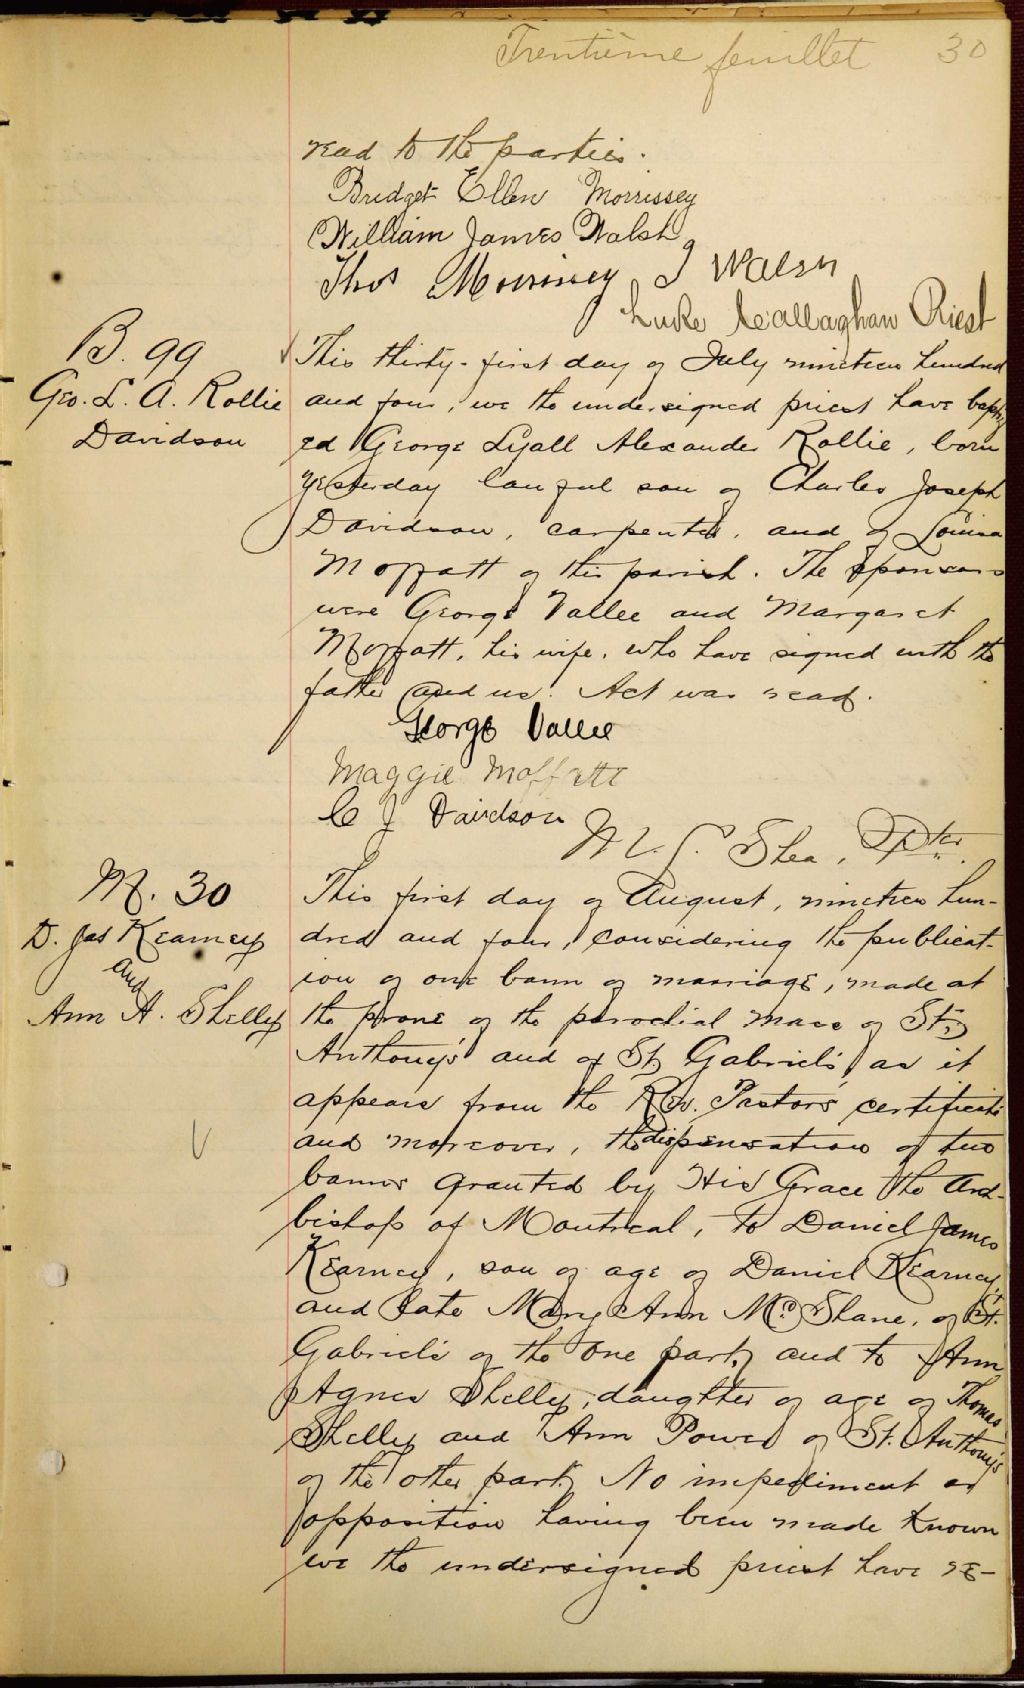 Trentième feuillet 30
read to the parties.
Bridget Ellen Morrissey
William James Walsh
Thos Morrissey J Walsh
Luke Callaghan Priest
B. 99
Geo. L. A. Rollie
Davidson
This thirty-first day of July nineteen hundred
and four, we the undersigned priest have baptiz
ed George Lyall Alexander Rollie, born
yesterday lawful son of Charles Joseph
Davidson, carpenter, and of Louisa
Moffatt of this parish. The sponsors
were George Vallee and Margaret
Moffatt, his wife, who have signed with the
father and us. Act was read.
George Vallee
Maggie Moffatt
C J Davidson
M. L. Shea, Pter.
M. 30
D. Jas Kearney
and
Ann A. Shelly
This first day of August, nineteen hun-
dred and four, considering the publicat-
ion of one bann of marriage, made at
the prone of the parochial mass of St.
Anthony's and of St Gabriel's, as it
appears from the Rev. Pastors' certificate
and moreover, the dispensation of two
banns granted by His Grace the Arch-
bishop of Montreal, to Daniel James
Kearney, son of age of Daniel Kearney,
and late Mary Ann McShane, of St.
Gabriel's of the one part, and to Ann
Agnes Shelly, daughter of age of Thomas
Shelly and Ann Power of St. Anthony's
of the other part. No impediment or
opposition having been made known
we the undersigned priest have re-